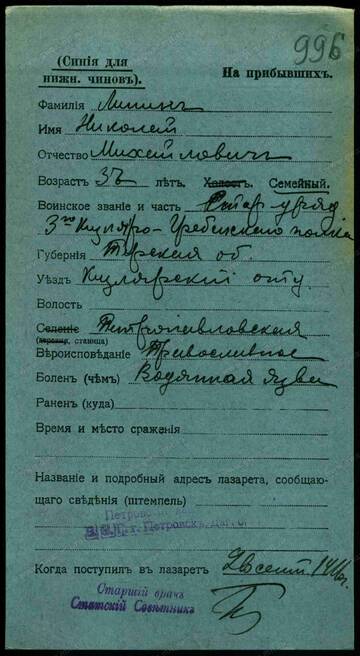 996
(Синія для
нижн. чиновъ).
На прибывшихъ.
Фамилія
Имя Николай
Отчество Михайловичъ
Возрастъ лѣтъ. Холостъ. Семейный.
Воинское званіе и часть Стар. уряд
3го Кизляро-Гребенского полка
Губернія Терская об.
Уѣздъ Кизлярскій отд.
Волость
Селеніе Петропавловская
(станица)
Вѣроисповѣданіе Православное
Боленъ (чѣмъ) язва
Раненъ (куда)
Время и мѣсто сраженія
Названіе и подробный адресъ лазарета, сообщаю-
щаго свѣдѣнія (штемпель)
г. Петровскъ, Даг. о.
Когда поступилъ въ лазаретъ сент. 1916
Старшій врачъ
Статскій Совѣтникъ